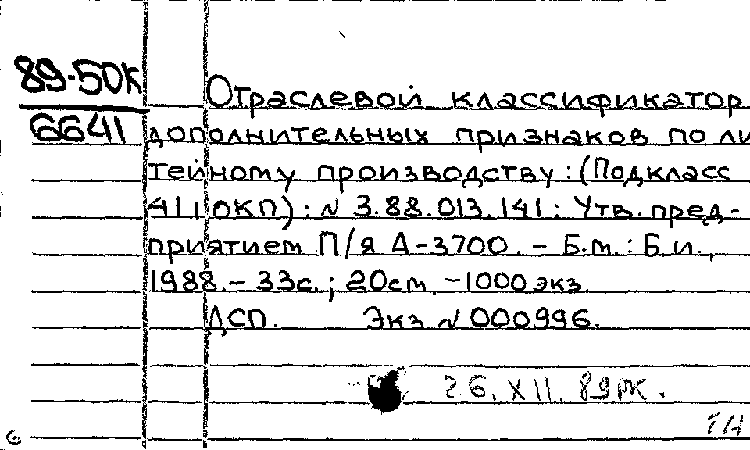 89-50К
6641
Отраслевой классификатор
дополнительных признаков по ли
тейному производству: (Подкласс
411 ОКП): N 3.88.013.141: Утв. пред-
приятием П/я А-3700. - Б.м.: Б.и.,
1988. - 33с.; 20см. - 1000 экз
ДСП. Экз N 000996.
26. XII. 89